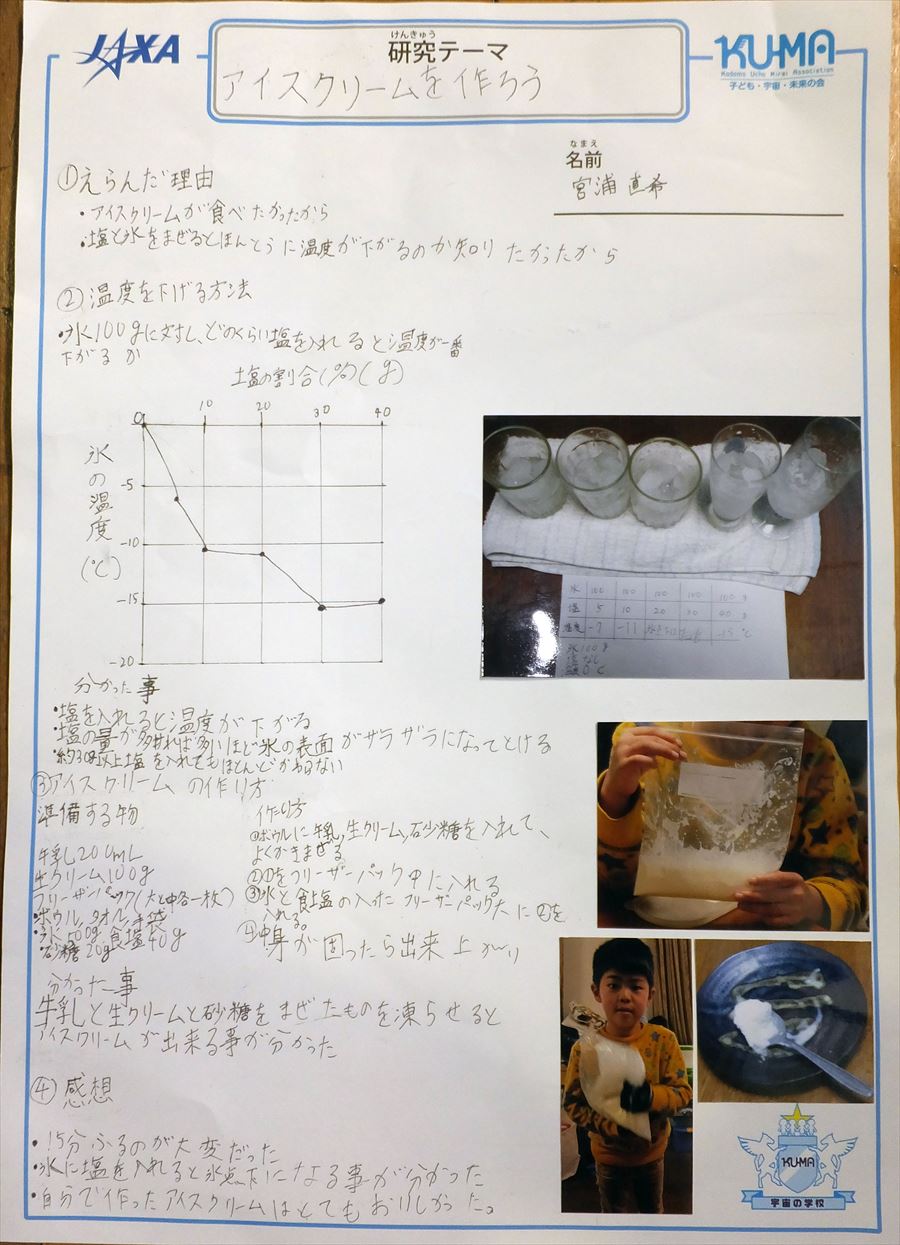 JAXA
けんきゅう
研究テーマ
アイスクリームを作ろう
KU-MA
Kodomo Uchu Mirai Association
子ども・宇宙・未来の会
なまえ
名前
宮浦 直希
①えらんだ理由
・アイスクリームが食べたかったから
・塩と氷をまぜるとほんとうに温度が下がるのか知りたかったから
②温度を下げる方法
・氷100gに対し、どのくらい塩を入れると温度が一番
下がるか
塩の割合(%)(g)
0 10 20 30 40
氷の温度(℃)
-5
-10
-15
-20
氷 100 100 100 100 100 g
塩 5 10 20 30 40 g
温度 -7 -11 -15 ℃
氷100g
塩なし
温度0℃
分かった事
・塩を入れると温度が下がる
・塩の量が多ければ多いほど氷の表面がザラザラになってとける
・約30g以上塩を入れてもほとんどかわらない
③アイスクリームの作り方
準備する物
牛乳200mL
生クリーム100g
フリーザーパック(大と中各一枚)
ボウル、タオル、手袋
氷500g 食塩40g
砂糖20g
作り方
①ボウルに牛乳,生クリーム,砂糖を入れて、
よくかきまぜる
②①をフリーザーパック中に入れる
③氷と食塩の入ったフリーザーパック大に②を
入れる。
④中身が固ったら出来上がり
分かった事
牛乳と生クリームと砂糖をまぜたものを凍らせると
アイスクリームが出来る事が分かった
④感想
・15分ふるのが大変だった
・氷に塩を入れると氷点下になる事が分かった
・自分で作ったアイスクリームはとてもおいしかった。
KU-MA
宇宙の学校